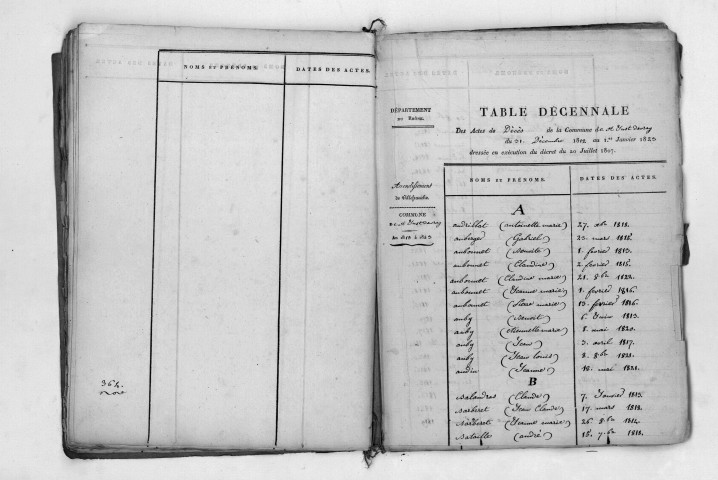 NOMS ET PRÉNOMS. DATES DES ACTES.
364.
DÉPARTEMENT
DU RHÔNE.
Arrondissement
de Villefranche
COMMUNE
de St Just davray
TABLE DÉCENNALE
Des Actes de Décès de la Commune de St Just davray
du 31. Décembre 1812 au 1.er Janvier 1823
dressée en exécution du décret du 20 Juillet 1807.
NOMS ET PRÉNOMS. DATES DES ACTES.
A
audrillat (antoinette marie) 27. xbre 1818.
auberger (Gabriel) 23. mars 1818.
aubonnet (Benoite) 1. fevrier 1813.
aubonnet (Claudine) 2. fevrier 1815.
aubonnet (Claudine marie) 21. 8bre 1822.
aubonnet (Jeanne marie) 1. fevrier 1816.
aubonnet (Pierre marie) 13. fevrier 1816.
auby (Benoit) 6. Juin 1813.
auby (Etiennette marie) 8. mai 1820.
auby (Jean) 3. avril 1817.
auby (Jean louis) 2. 8bre 1821.
audin (Jeanne) 18. mai 1821.
B
Balandras (Claude) 7. Janvier 1813.
Barberet (Jean Claude) 17. mars 1818.
Barberet (Jeanne marie) 26. 8bre 1814.
Bataille (andré) 18. 7bre 1818.